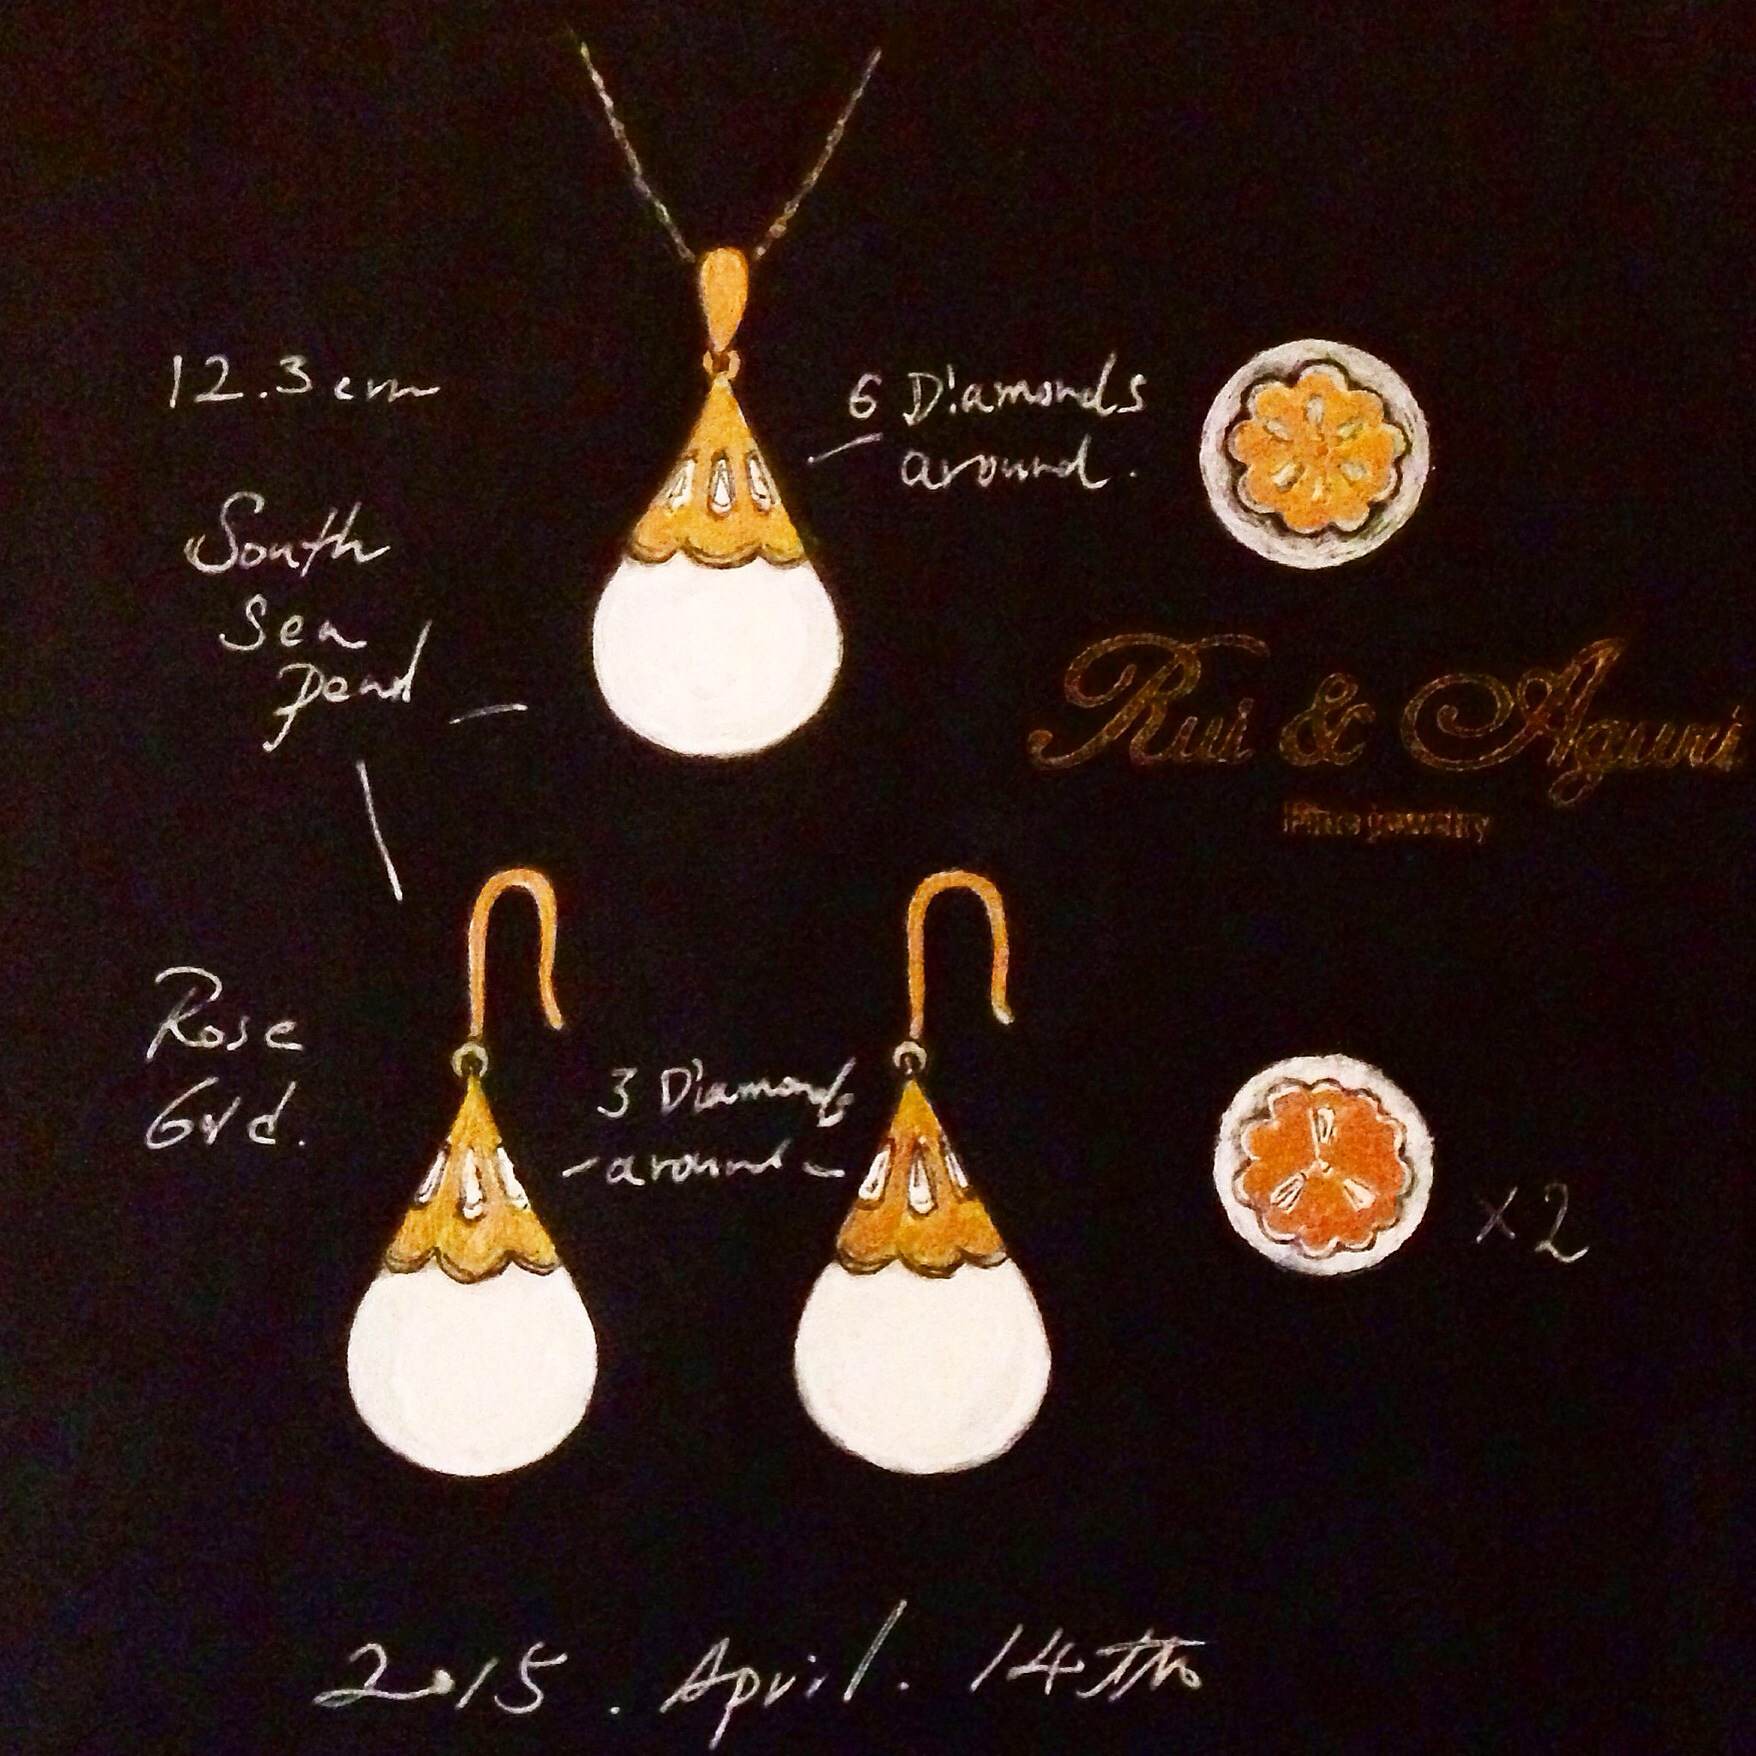 12.3cm
6 Diamonds
around.
South
Sea
Pearl
Rui & Aguri
Fine jewelry
Rose
Gold.
3 Diamonds
around
x2
2015. April. 14th